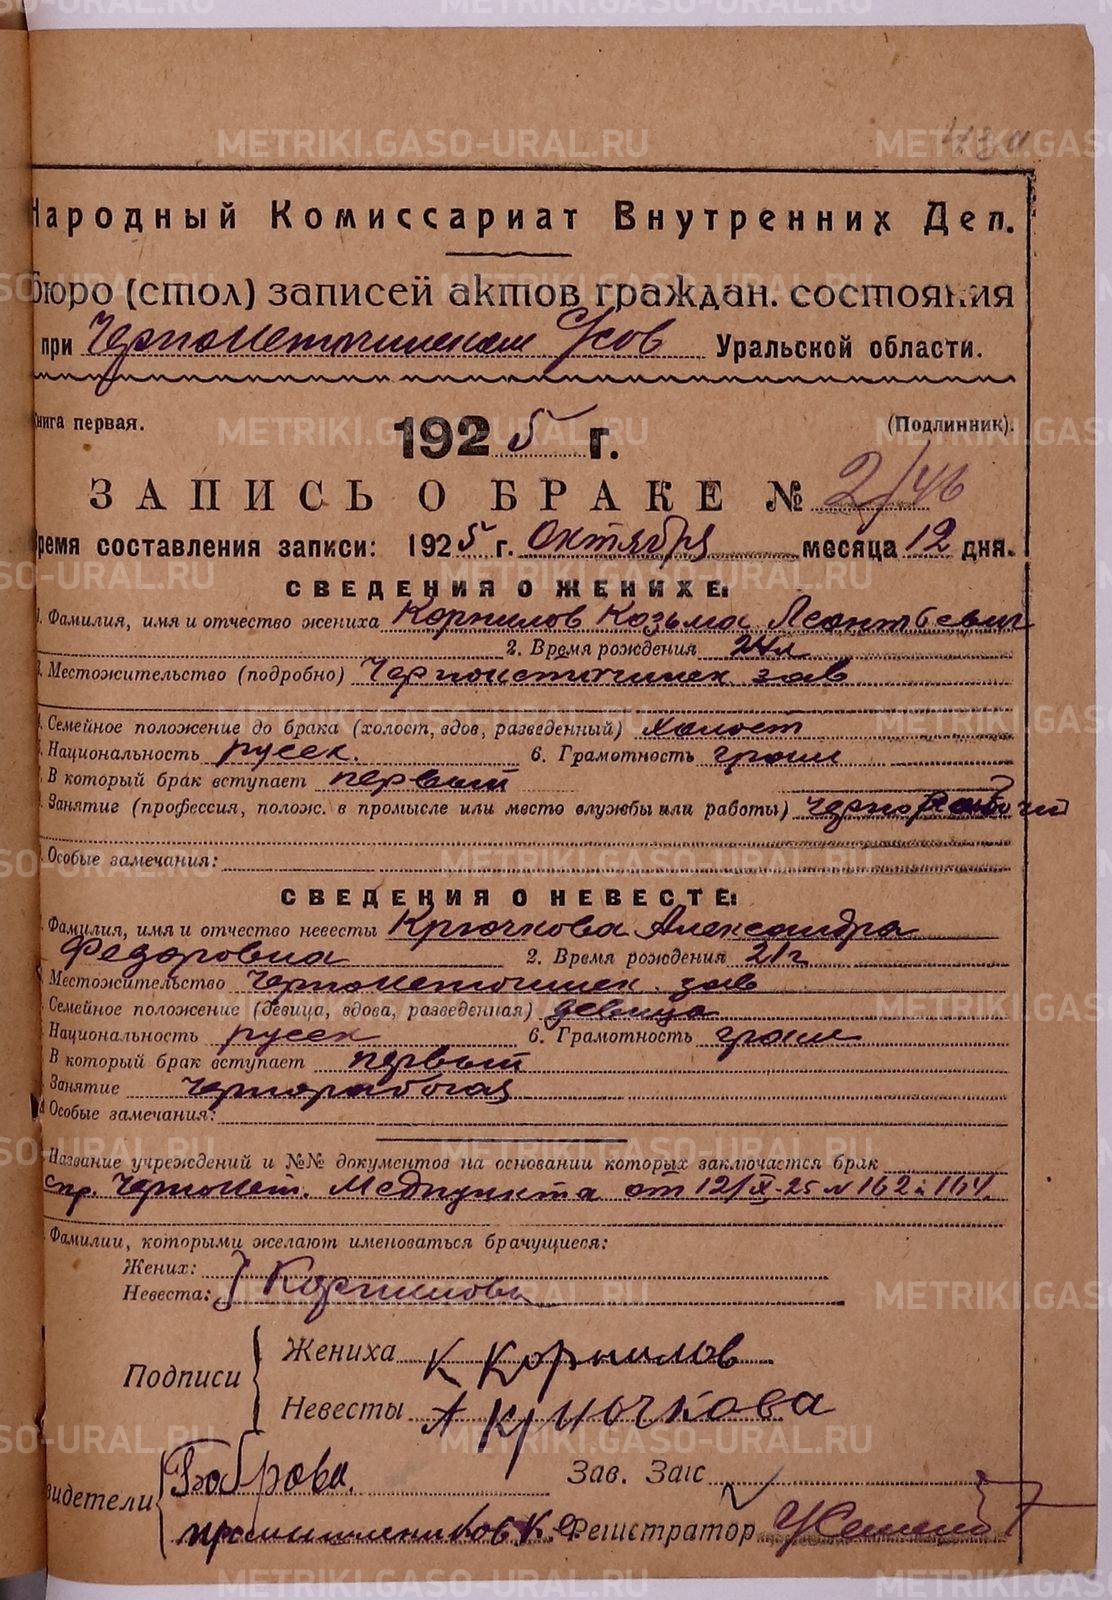 Народный Комиссариат Внутренних Дел.
бюро (стол) записей актов граждан. состояния
при Черноисточинском Уральской области.
Книга первая. (Подлинник).
1925 г.
ЗАПИСЬ О БРАКЕ № 2/46
Время составления записи: 1925 г. октября месяца 12 дня.
СВЕДЕНИЯ О ЖЕНИХЕ:
1. Фамилия, имя и отчество жениха Корнилов Козьма Леонтьевич
2. Время рождения 24 л
3. Местожительство (подробно) Черноисточинск зав
4. Семейное положение до брака (холост, вдов, разведенный) холост
5. Национальность русск. 6. Грамотность грам
В который брак вступает первый
Занятие (профессия, полож. в промысле или место службы или работы) чернорабочий
Особые замечания:
СВЕДЕНИЯ О НЕВЕСТЕ:
Фамилия, имя и отчество невесты Крючкова Александра
Федоровна 2. Время рождения 21 г
Местожительство Черноисточинск. зав
Семейное положение (девица, вдова, разведенная) девица
Национальность русск 6. Грамотность грам
В который брак вступает первый
Занятие чернорабочая
Особые замечания:
Название учреждений и №№ документов на основании которых заключается брак
спр. Черноист. Медпункта от 12/X-25 N 162 и 164.
Фамилии, которыми желают именоваться брачущиеся:
Жених:
Невеста: Корниловы
Подписи
Жениха К Корнилов
Невесты А Крючкова
Свидетели
Боброва. Зав. Загс
Промышленников К. Регистратор
METRIKI.GASO-URAL.RU